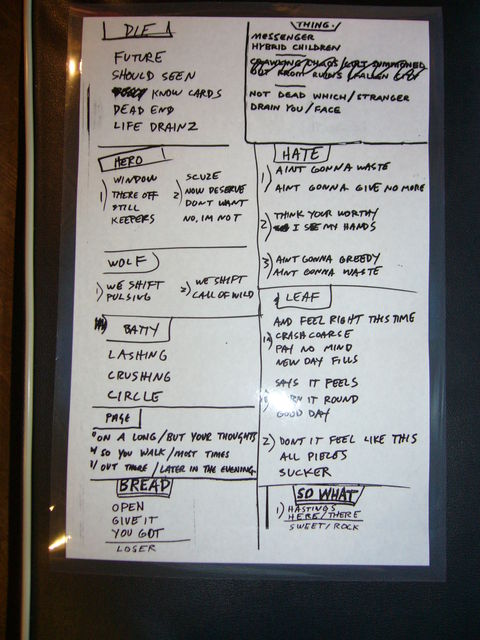 DIE
FUTURE
SHOULD SEEN
KNOW CARDS
DEAD END
LIFE DRAINZ
THING.
MESSENGER
HYBRID CHILDREN
CRAWLING CHAOS
OUT FROM RUINS FALLEN
NOT DEAD WHICH/STRANGER
DRAIN YOU/FACE
HERO
1) WINDOW
THERE OFF
STILL
KEEPERS
2) SCUZE
NOW DESERVE
DONT WANT
NO, IM NOT
HATE
1) AINT GONNA WASTE
AINT GONNA GIVE NO MORE
2) THINK YOUR WORTHY
I SEE MY HANDS
3) AINT GONNA GREEDY
AINT GONNA WASTE
WOLF
1) WE SHIFT
PULSING
2) WE SHIFT
CALL OF WILD
BATTY
LASHING
CRUSHING
CIRCLE
LEAF
AND FEEL RIGHT THIS TIME
CRASH COARSE
PAY NO MIND
NEW DAY FILLS
SAYS IT FEELS
IT ROUND
GOOD DAY
2) DONT IT FEEL LIKE THIS
ALL PIECES
SUCKER
PAGE
ON A LONG/BUT YOUR THOUGHTS
SO YOU WALK/MOST TIMES
OUT THERE/LATER IN THE EVENING.
BREAD
OPEN
GIVE IT
YOU GOT
LOSER
SO WHAT
1) HASTINGS
HERE/THERE
SWEET/ROCK